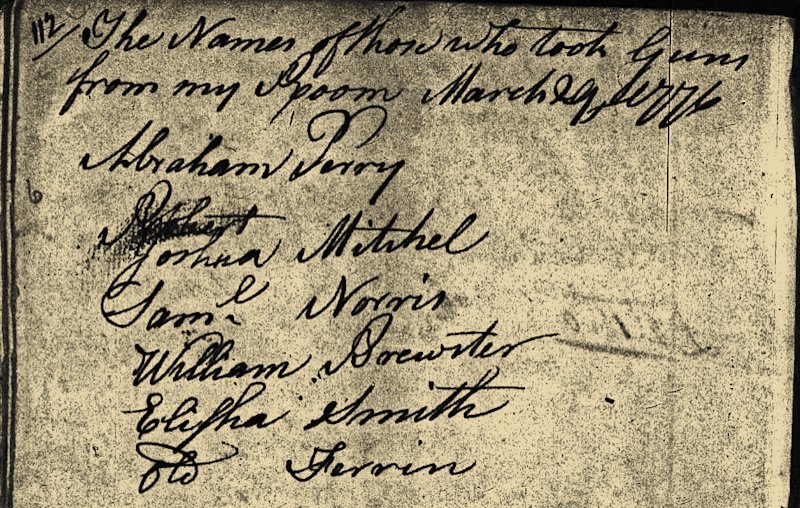 112/ The Names of those who took Guns
from my Room March 29th 1776
Abraham Perry
Robert
Joshua Mitchel
Saml Norris
William Brewster
Elisha Smith
Old Ferrin